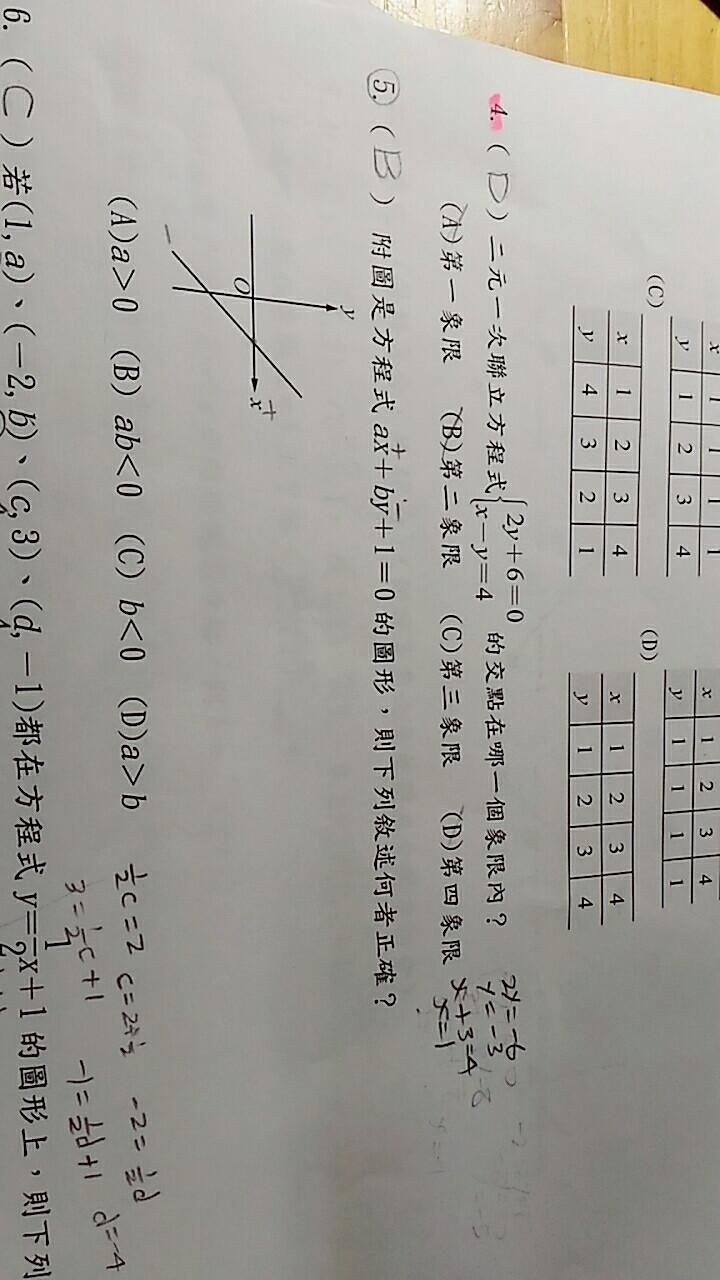 x 1 1 1 1
y 1 2 3 4
x 1 2 3 4
y 1 1 1 1
(C)
x 1 2 3 4
y 4 3 2 1
(D)
x 1 2 3 4
y 1 2 3 4
4. ( D ) 二元一次聯立方程式{2y+6=0
x-y=4 的交點在哪一個象限內?
(A)第一象限 (B)第二象限 (C)第三象限 (D)第四象限
2y=-6
y=-3
x+3=4
x=1
5. ( B ) 附圖是方程式 ax+by+1=0 的圖形,則下列敘述何者正確?
+ -
y
O
x
+
-
(A)a>0 (B) ab<0 (C) b<0 (D)a>b
½c=2
3=½c+1
-2=½d
-1=½d+1
d=-4
6. ( C ) 若(1, a)、(-2, b)、(c, 3)、(d, -1)都在方程式 y=½x+1 的圖形上,則下列